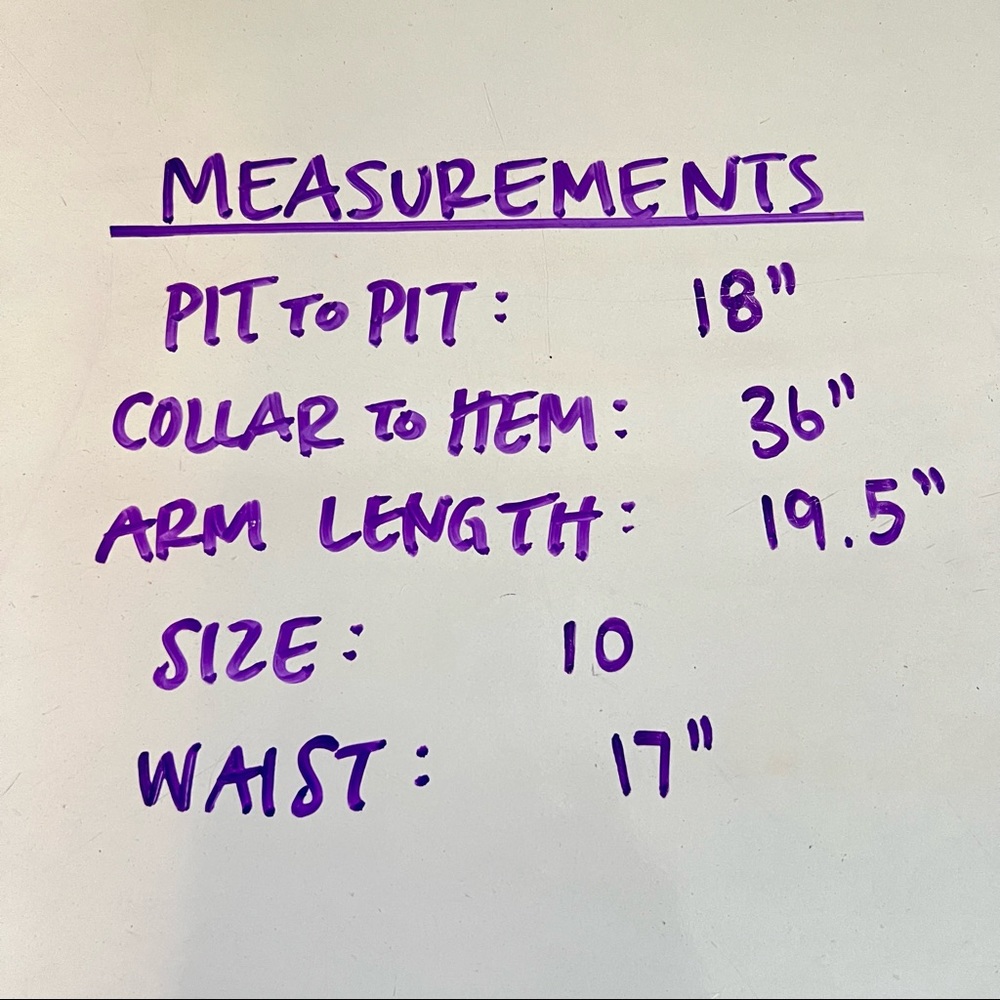 MEASUREMENTS
PIT TO PIT: 18"
COLLAR TO HEM: 36"
ARM LENGTH: 19.5"
SIZE: 10
WAIST: 17"